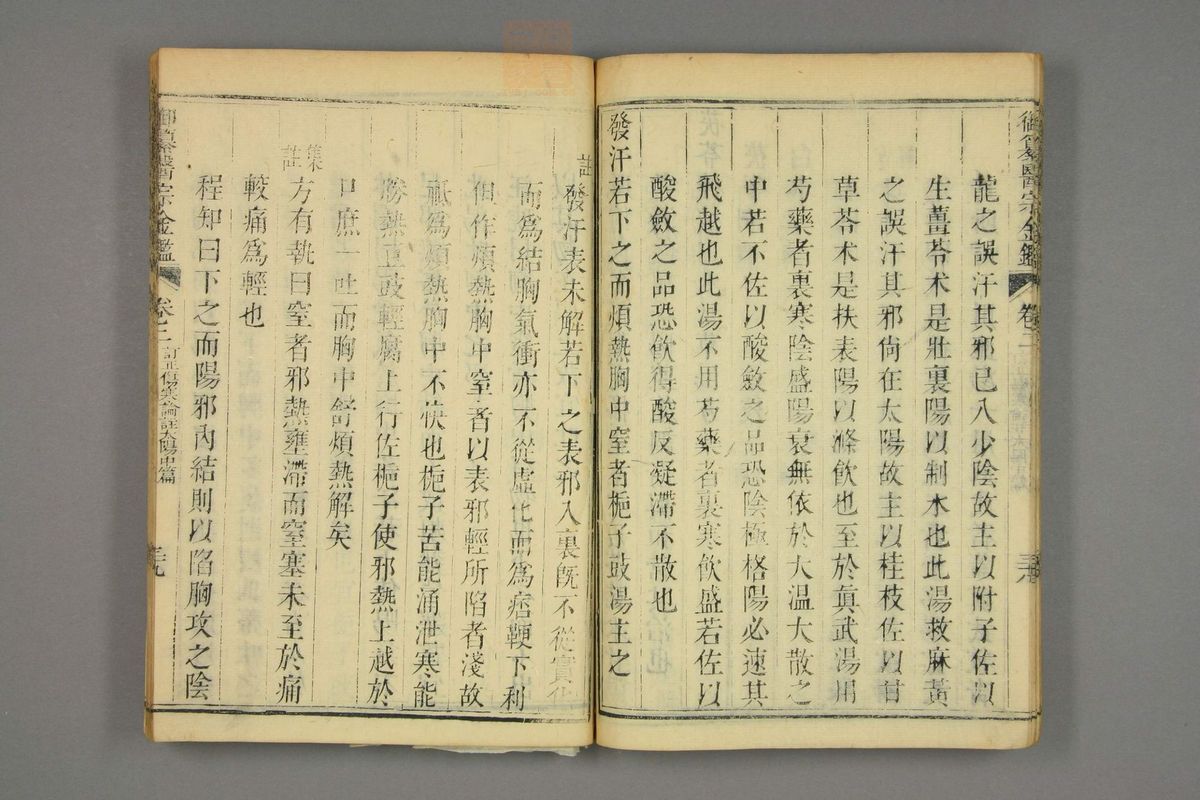 御纂醫宗金鑑 卷二 三六
龍之誤汗其邪已入少陰故主以附子佐以
生薑苓朮是壯裏陽以制水也此湯救麻黃
之誤汗其邪尙在太陽故主以桂枝佐以甘
草苓朮是扶表陽以滌飮也至於眞武湯用
芍藥者裏寒陰盛陽衰無依於大溫大散之
中若不佐以酸斂之品恐陰極格陽必速其
飛越也此湯不用芍藥者裏寒飮盛若佐以
酸斂之品恐飮得酸反凝滯不散也
發汗若下之而煩熱胸中窒者梔子豉湯主之
註 發汗表未解若下之表邪入裏旣不從實化
而爲結胸氣衝亦不從虛化而爲痞鞕下利
但作煩熱胸中窒者以表邪輕所陷者淺故
祇爲煩熱胸中不快也梔子苦能涌泄寒能
勝熱豆豉輕腐上行佐梔子使邪熱上越於
口庶一吐而胸中舒煩熱解矣
集註 方有執曰窒者邪熱壅滯而窒塞未至於痛
較痛爲輕也
程知曰下之而陽邪內結則以陷胸攻之陰
御纂醫宗金鑑 卷二 訂正傷寒論註太陽中篇 三九